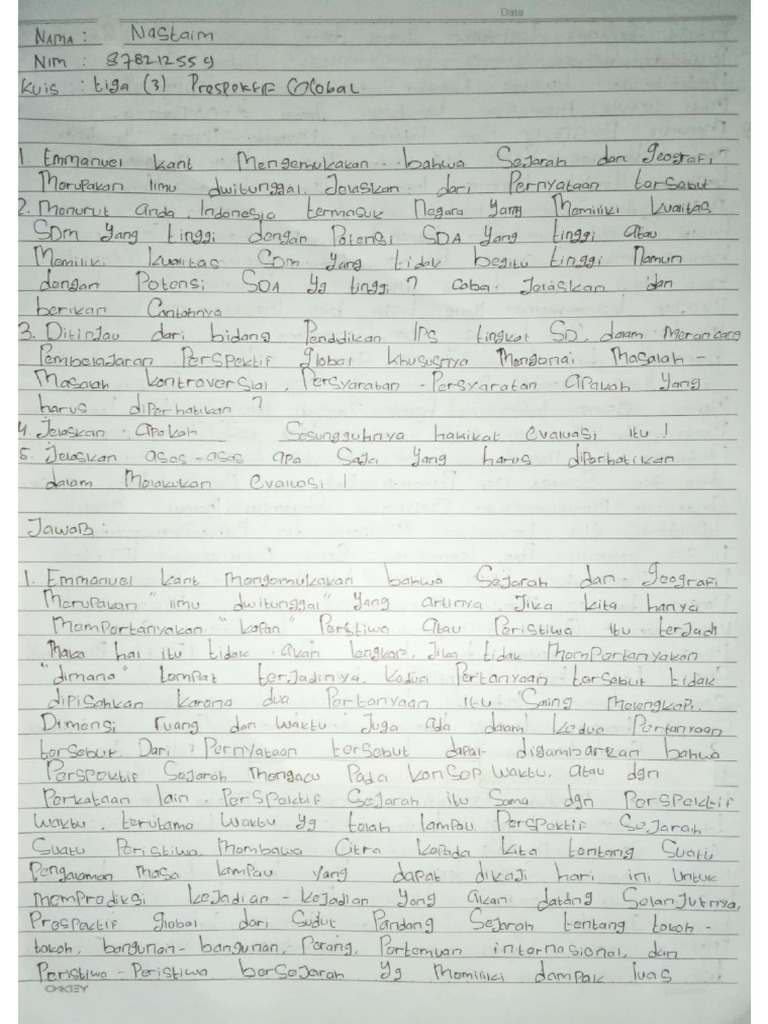 Date
NAMA : Nastaim
NIM : 878212559
Kuis : tiga (3) Prespektif Global
1. Emmanuel kant Mengemukakan bahwa Sejarah dan geografi
Merupakan ilmu dwitunggal. Jelaskan dari Pernyataan tersebut
2. Menurut anda, Indonesia termasuk Negara yang Memiliki kualitas
SDM yang tinggi dengan Potensi SDA yang tinggi atau
Memiliki kualitas SDM yang tidak begitu tinggi Namun
dengan Potensi SDA yg tinggi ? Coba Jelaskan dan
berikan Contohnya
3. Ditinjau dari bidang Pendidikan IPS tingkat SD, dalam Merancang
Pembelajaran Perspektif global khususnya Mengenai Masalah -
Masalah kontroversial, Persyaratan - Persyaratan apakah yang
harus diperhatikan ?
4. Jelaskan apakah Sesungguhnya hakikat evaluasi itu !
5. Jelaskan asas-asas apa Saja yang harus diperhatikan
dalam Melakukan evaluasi !
Jawab :
1. Emmanuel kant Mengemukakan bahwa Sejarah dan geografi
Merupakan "ilmu dwitunggal" yang artinya Jika kita hanya
Mempertanyakan "kapan" Perstiwa atau Peristiwa itu terjadi
Maka hal itu tidak akan lengkap, Jika tidak Mempertanyakan
"dimana" tempat terjadinya. kedua Pertanyaan tersebut tidak
dipisahkan karena dua Pertanyaan itu Saling Melengkapi.
Dimensi ruang dan waktu Juga ada dalam kedua Pertanyaan
tersebut. Dari Pernyataan tersebut dapat digambarkan bahwa
Perspektif Sejarah Mengacu Pada konsep waktu. atau dgn
Perkataan lain, Perspektif Sejarah itu Sama dgn Perspektif
waktu, terutama waktu yg telah lampau. Perspektif Sejarah
Suatu Peristiwa Membawa Citra kepada kita tentang Suatu
Pengalaman Masa lampau yang dapat dikaji hari ini Untuk
Memprediksi kejadian - kejadian yang akan datang Selanjutnya,
Prespektif global dari Sudut Pandang Sejarah tentang tokoh -
tokoh, bangunan - bangunan, Perang, Pertemuan internasional, dan
Peristiwa - Peristiwa bersejarah yg Memiliki dampak luas
OKEY